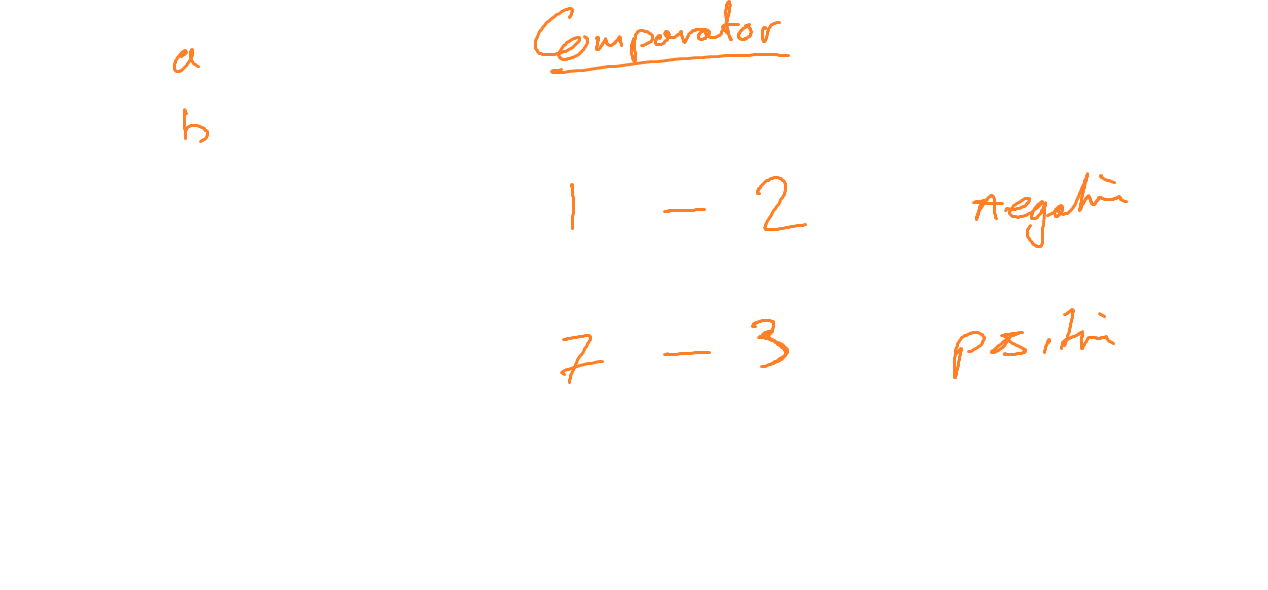 Comparator
a
b
1 - 2 negative
7 - 3 positive